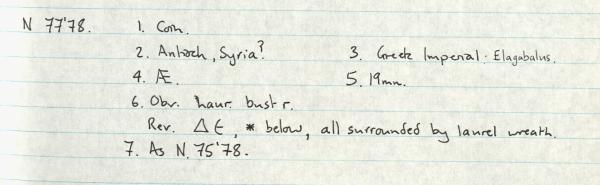 N 77'78. 1. Coin.
2. Antioch, Syria? 3. Greek Imperial: Elagabalus.
4. Æ. 5. 19mm.
6. Obv. laur. bust r.
Rev. Δ Є, * below, all surrounded by laurel wreath.
7. As N. 75'78.